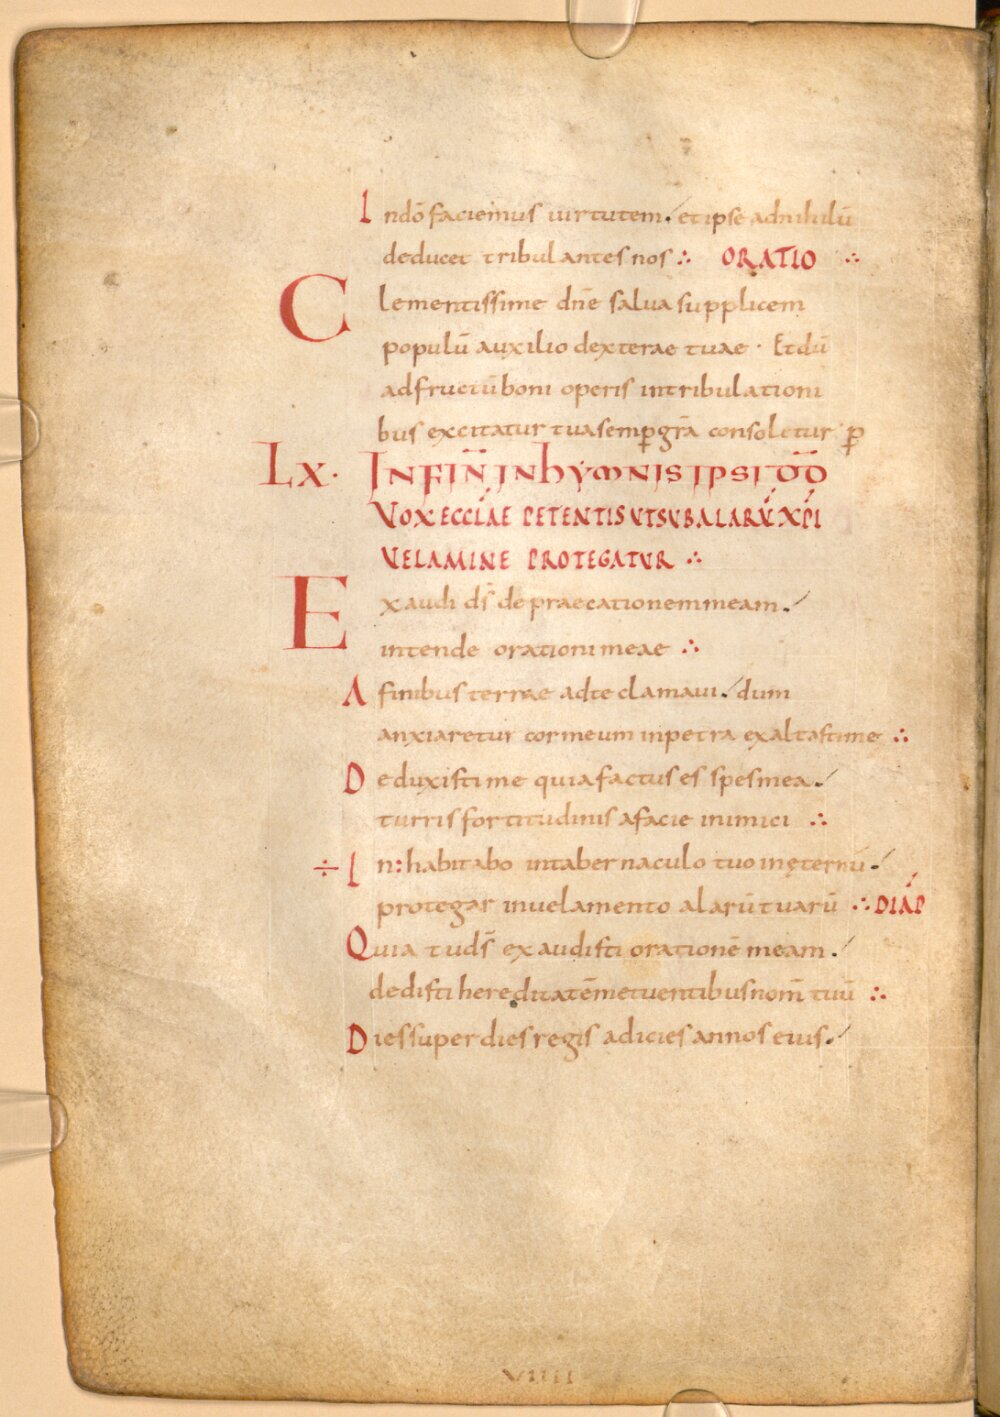 In dō faciemus uirtutem. et ipse adnihilū
deducet tribulantes nos ∴ ORATIO ∴
Clementissime dn̄e salua supplicem
populū auxilio dexterae tuae · Et dū
ad fructū boni operis in tribulationi
bus excitatur tua semp gr̄a consoletur · p
LX· IN FIN̄ IN hYMNIS IPSI DD̄
VOX ECCLAE PETENTIS UT SUB ALARŪ XPI
VELAMINE PROTEGATUR ∴
Exaudi ds̄ depraecationem meam.
intende orationi meae ∴
A finibus terrae ad te clamaui. dum
anxiaretur cor meum in petra exaltasti me ∴
Deduxisti me quia factus es spes mea.
turris fortitudinis a facie inimici ∴
÷ In: habitabo in tabernaculo tuo in ęternū.
protegar in uelamento alarū tuarū ∴ DIAP
Quia tu ds̄ exaudisti orationē meam.
dedisti hereditatē metuentibus nom̄ tuū ∴
Dies super dies regis adicies annos eius.
VIIII